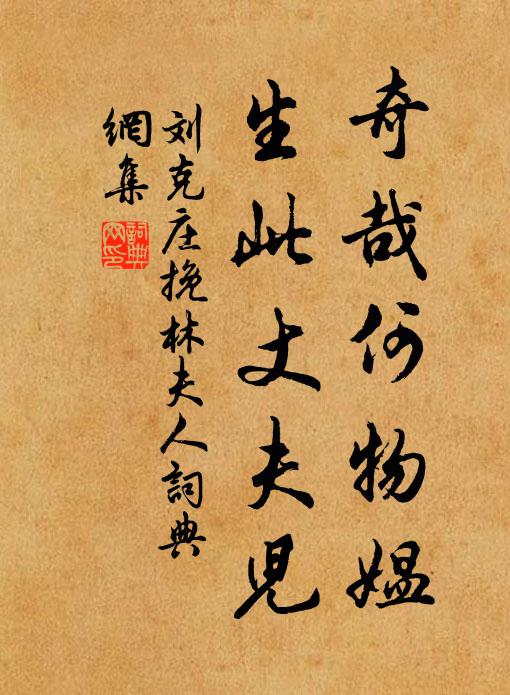 奇哉何物媪
生此丈夫児
刘克庄挽林夫人詞典
網集
詞典
网印